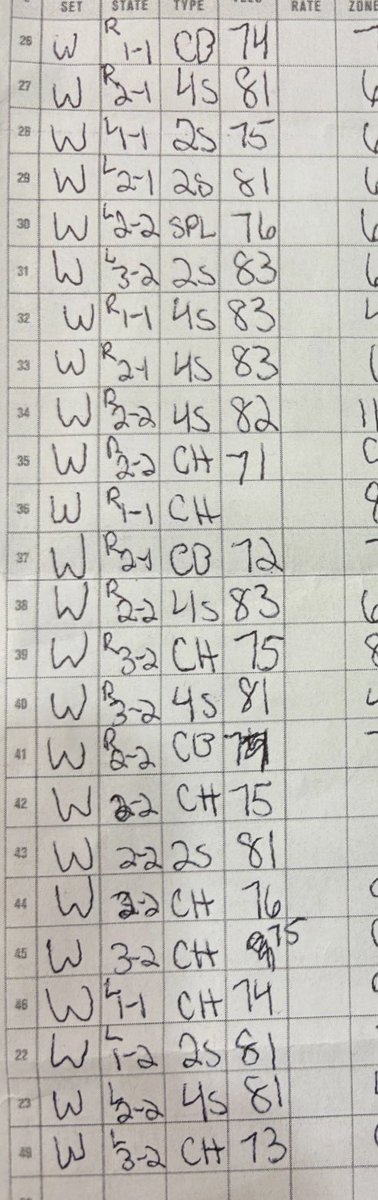 SET STATE TYPE VELO RATE ZONE
26 W R 1-1 CB 74
27 W R 2-1 4S 81
28 W L 1-1 2S 75
29 W L 2-1 2S 81
30 W L 2-2 SPL 76
31 W L 3-2 2S 83
32 W R 1-1 4S 83
33 W R 2-1 4S 83
34 W R 2-2 4S 82 11
35 W R 2-2 CH 71
36 W R 1-1 CH
37 W R 2-1 CB 72
38 W R 2-2 4S 83
39 W R 3-2 CH 75
40 W R 3-2 4S 81
41 W R 2-2 CB
42 W 2-2 CH 75
43 W 2-2 2S 81
44 W 2-2 CH 76
45 W 3-2 CH 75
46 W L 1-1 CH 74
22 W L 1-2 2S 81
23 W L 2-2 4S 81
49 W L 3-2 CH 73